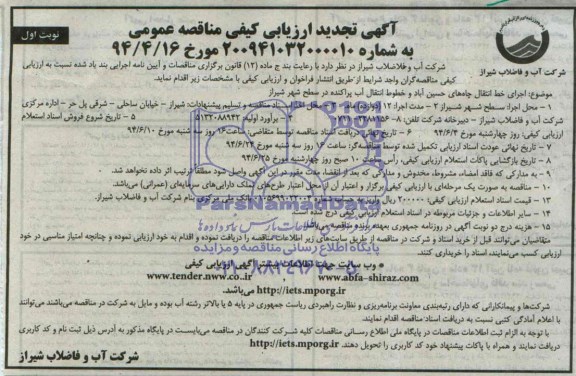 نوبت اول
آگهی تجدید ارزیابی کیفی مناقصه عمومی
به شماره ۲۰۰۹۴۱۰۳۲۰۰۰۰۱۰ مورخ ۹۴/۴/۱۶
شرکت آب و فاضلاب شیراز
شرکت آب و فاضلاب شیراز در نظر دارد با رعایت بند ج ماده (۱۲) قانون برگزاری مناقصات و آیین نامه اجرایی بند یاد شده نسبت به ارزیابی
کیفی مناقصه‌گران واجد شرایط از طریق انتشار فراخوان و ارزیابی کیفی با مشخصات زیر اقدام نماید.
موضوع: اجرای خط انتقال چاه‌های حسین آباد و خطوط انتقال آب پراکنده در سطح شهر شیراز
۱ – محل اجرا: سطح شهر شیراز ۲ – مدت اجرا: ۱۲ (دوازده) ماه ۳ – محل اسناد مناقصه و تسلیم پیشنهادات: شیراز – خیابان ساحلی – شرقی پل حر – اداره مرکزی
شرکت آب و فاضلاب شیراز – دبیرخانه شرکت تلفن: ۸– ۴ – برآورد اولیه ۵ – تاریخ شروع فروش اسناد استعلام
ارزیابی کیفی: روز چهارشنبه مورخ ۹۴/۶/۴ ۶ – تاریخ نهائی دریافت اسناد مناقصه توسط متقاضی: ساعت ۱۶ روز سه شنبه مورخ ۹۴/۶/۱۰
۷ – تاریخ نهائی عودت اسناد ارزیابی تکمیل شده توسط مناقصه‌گر: ساعت ۱۶ روز سه شنبه مورخ ۹۴/۶/۲۴
۸ – تاریخ بازگشایی پاکات استعلام ارزیابی کیفی: رأس ساعت ۱۰ صبح روز چهارشنبه مورخ ۹۴/۶/۲۵
۹ – به مدارکی که فاقد امضاء، مشروط، مخدوش و مدارکی که بعد از انقضاء مدت مقرر در این آگهی واصل شود مطلقا ترتیب اثر داده نخواهد شد.
۱۰ – مناقصه به صورت یک مرحله‌ای با ارزیابی کیفی برگزار و اعتبار آن از محل اعتبار طرح‌های تملک دارایی‌های سرمایه‌ای (عمرانی) می‌باشد.
۱۳ – قیمت اسناد استعلام ارزیابی کیفی: ۲۰۰۰۰۰ ریال واریز به شماره بانک ملی مرکزی بنام شرکت آب و فاضلاب شیراز
۱۴ – سایر اطلاعات و جزئیات مربوطه در اسناد استعلام ارزیابی کیفی درج شده است.
۱۵ – هزینه درج دو نوبت آگهی در روزنامه جمهوری بعهده برنده مناقصه می‌باشد.
متقاضیان می‌توانند قبل از خرید اسناد و شرکت در مناقصه از طریق سایت‌های زیر اطلاعات مناقصه را دریافت نموده و اقدام به خود ارزیابی نموده و چنانچه امتیاز مناسبی در خود
ارزیابی کسب می‌نمایند، اسناد را خریداری کنند.
* وب سایت جهت اطلاعات بیشتر آگهی ارزیابی کیفی
www.tender.nww.co.ir www.abfa-shiraz.com
http://iets.mporg.ir می‌باشد.
شرکت‌ها و پیمانکارانی که دارای رتبه‌بندی معاونت برنامه‌ریزی و نظارت راهبردی ریاست جمهوری در پایه ۵ یا بالاتر رشته آب بوده و مایل به شرکت در مناقصه می‌باشند می‌توانند
با اعلام آمادگی کتبی نسبت به دریافت اسناد مناقصه اقدام نمایند.
با توجه به الزام ثبت اطلاعات مناقصات در پایگاه ملی اطلاع رسانی مناقصات کلیه شرکت کنندگان در مناقصه می‌بایست در پایگاه مذکور به آدرس ذیل ثبت نام و کد کاربری
دریافت نمایند و همراه با پاکات پیشنهاد خود کد کاربری را تحویل دهند. http://iets.mporg.ir
شرکت آب و فاضلاب شیراز
ParsNamadData
پایگاه اطلاع رسانی مناقصه و مزایده